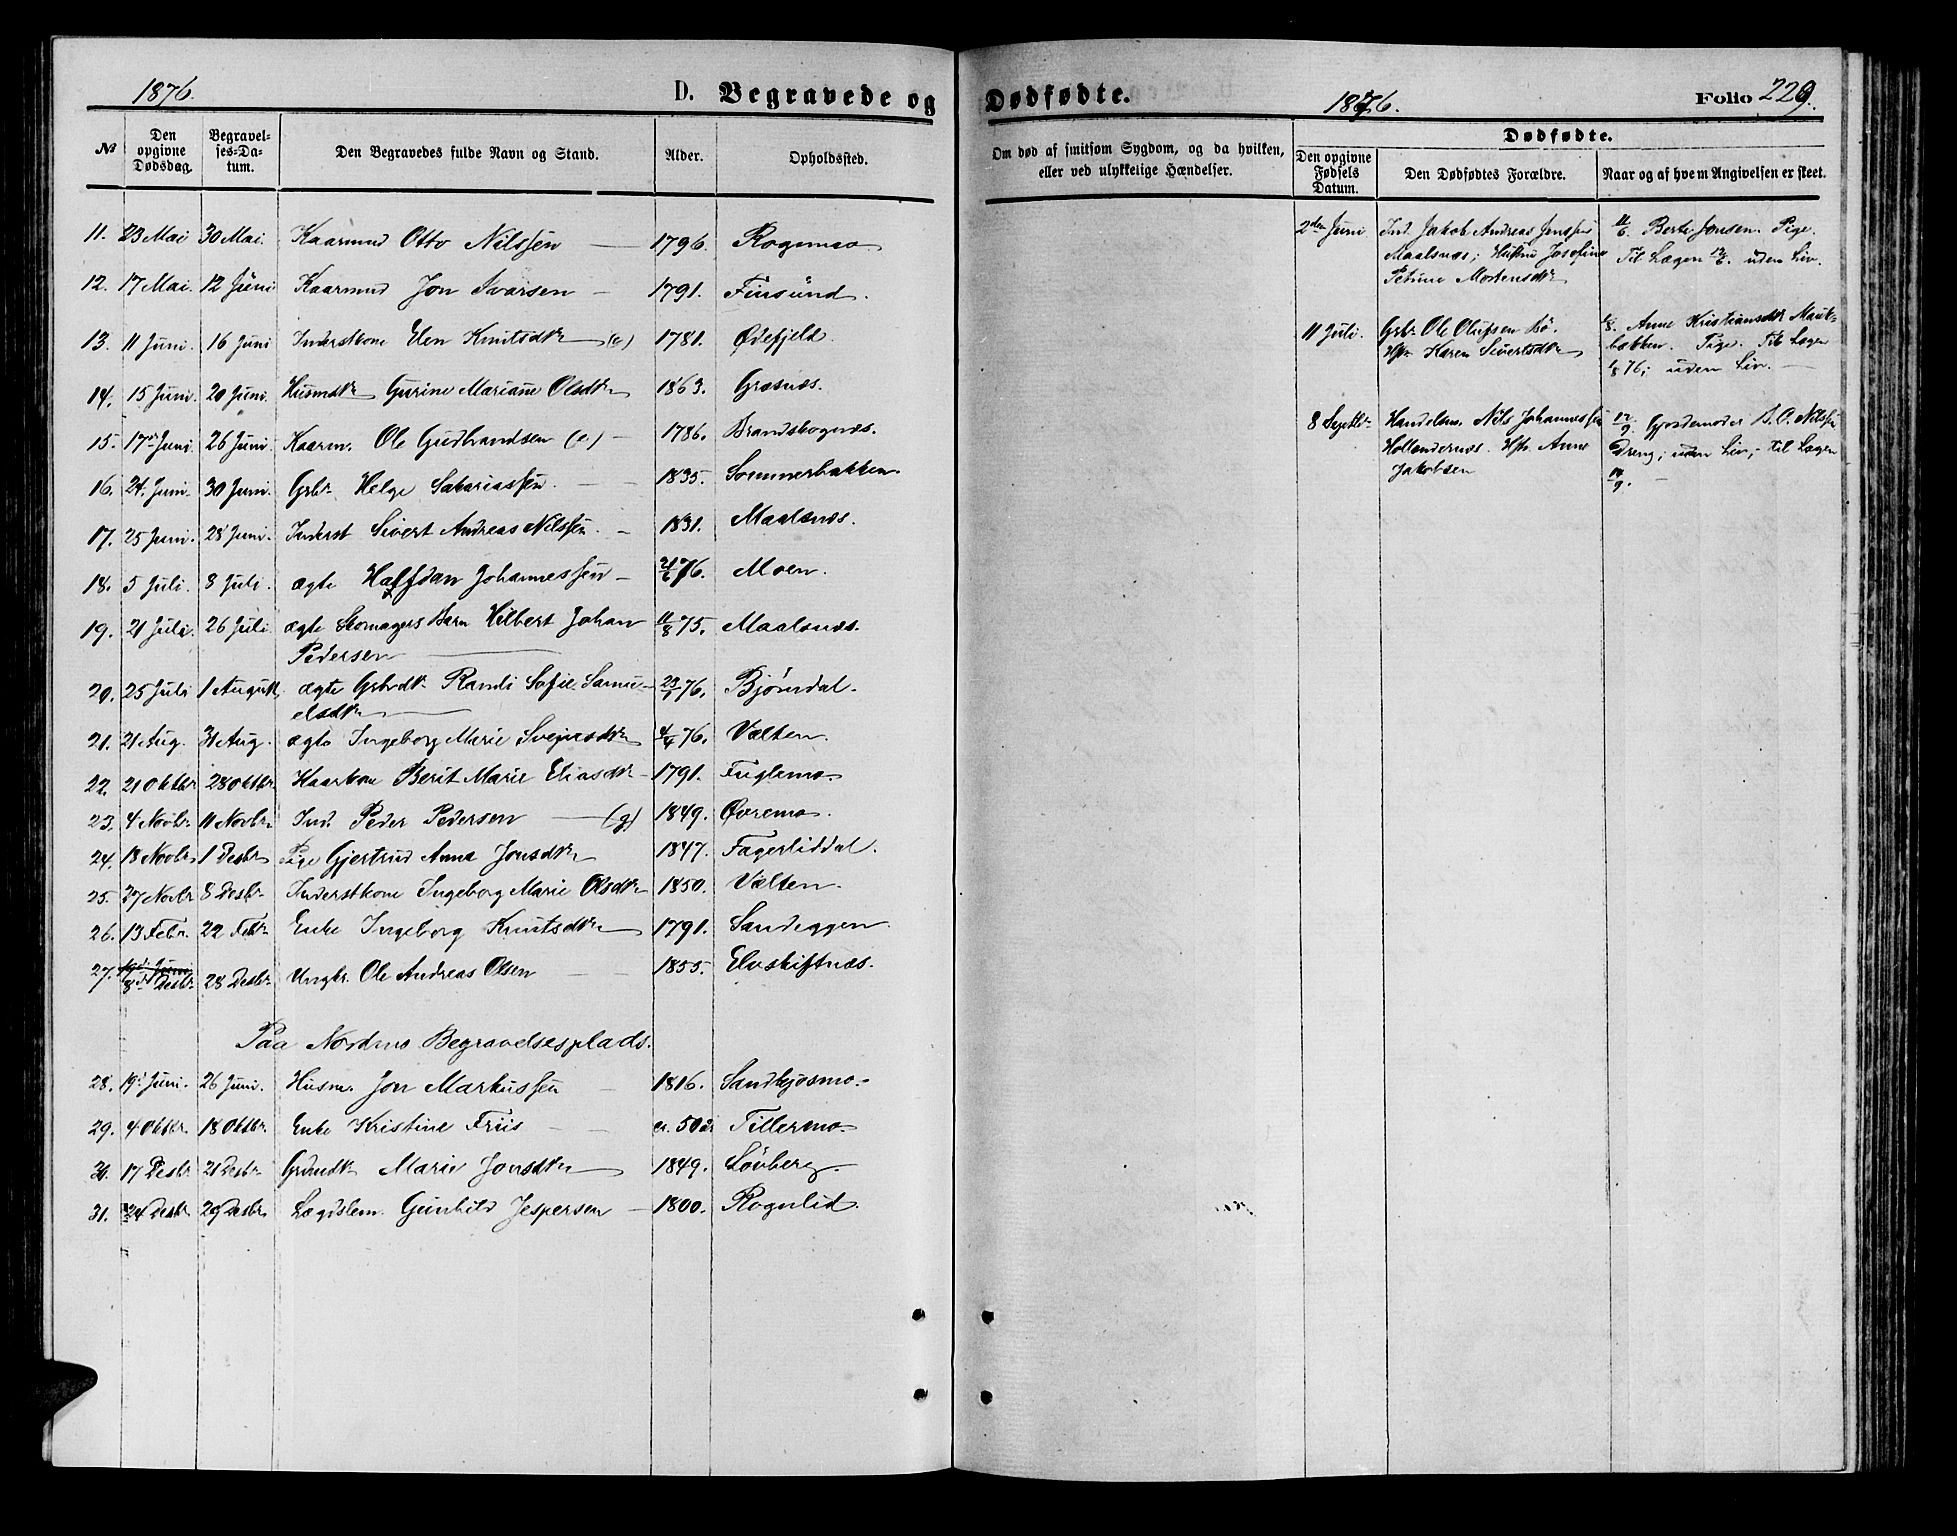 1876.
D. Begravede og
№
Den opgivne Dødsdag.
Begravel-ses-Da-tum.
Den Begravedes fulde Navn og Stand.
Alder.
Opholdssted.
11. 23 Mai 30 Mai. Kaarmand Otto Nilssen — 1796. Rognmo
12. 17 Mai. 12 Juni Kaarmand Jon Ivarsen — 1791. Finsund.
13. 11 Juni. 16 Juni Inderstkone Elen Knutsdtr (e) 1781. Ødefjeld.
14. 15 Juni. 20 Juni. Husmdtr Gurine Mariane Olsdtr 1863. Græsnæs.
15. 17de Juni. 26 Juni Kaarm. Ole Gudbrandsen (e) — 1786. Brandskognæs.
16. 24. Juni. 30 Juni. Grbr. Helge Sakariassen. — 1835. Sommerbakken.
17. 25 Juni. 28 Juni. Inderst Sivert Andreas Nilssen. — 1831. Maalsnæs.
18. 5 Juli. 8 Juli. ægte Halfdan Johannessen — 21/6 76. Moen.
19. 21 Juli. 26 Juli. ægte Skomagers Barn Hilbert Johan 11/8 75. Maalsnæs.
Pedersen
20. 25 Juli 1 August. ægte Grbrdtr. Randi Sofie Samu- 23/1 76. Bjørndal.
elsdtr
21. 21 Aug. 31 Aug. ægte Ingeborg Marie Svejnsdtr 4/4 76. Vælten.
22. 21 Oktbr 28 Oktbr. Kaarkone Berit Marie Eliasdtr — 1791. Fuglemo.
23. 4 Novbr. 11 Novbr. Ind. Peder Pedersen — (g) 1849. Øvremo.
24. 18 Novbr. 1 Desbr. Pige Gjertrud Anna Jonsdtr 1847. Fagerliddal.
25. 27 Novbr 8 Desbr. Inderstkone Ingeborg Marie Olsdtr 1850. Vælten.
26. 13 Febr. 22 Febr Enke Ingeborg Knutsdtr 1791. Sandeggen.
27. 8de Desbr. 28 Desbr. Ungkr. Ole Andreas Olsen — 1855. Elveskiftnæs.
Paa Nordmo Begravelsesplads.
28. 19de Juni. 26 Juni. Husm. Jon Markussen — 1816. Sandkjosmo.
29. 4 Oktbr. 18 Oktbr. Enke Kristine Friis — ca. 50 år Tillermo.
30. 17 Desbr. 21 Desbr. Grdmdtr. Marie Jonsdtr 1849. Løvberg.
31. 24 Desbr. 29 Desbr. Lægdslem. Gunhild Jespersen — 1800. Rognlid.
Dødfødte.
1876.
Folio 229.
Om død af smitsom Sygdom, og da hvilken,
eller ved ulykkelige Hændelser.
Dødfødte.
Den opgivne Fødsels Datum.
Den Dødfødtes Forældre.
Naar og af hvem Angivelsen er skeet.
2den Juni Ind. Jakob Andreas Jenssen 11/6 Berte Jonsen. Pige.
Maalsnæs; Hustru Josefine Til Lægen 12/6. uden Liv.
Petrine Mortensdtr
11 Juli. Grbr Ole Olufsen Bø. 1/8. Anne Kristiansdtr Mauk-
Hstr Karen Sivertsdtr bækken. Pige. Til Lægen
1/8 76; uden Liv. —
8 Septbr. Handelsm. Nils Johannessen 17/9. Gjordemoder A. O. Nilssen
Hollændernæs. Hstr. Anne Dreng; uden Liv; til Lægen
Jakobsen 19/9. —